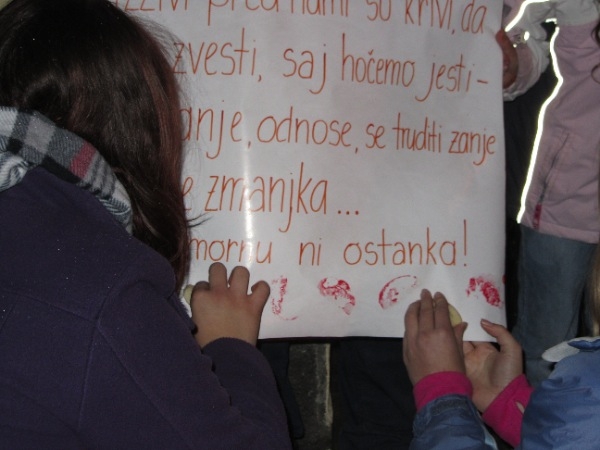 pred nami so krivi, da
zvesti, saj hočemo jesti-
anje, odnose, se truditi zanje
e zmanjka...
mornu ni ostanka!